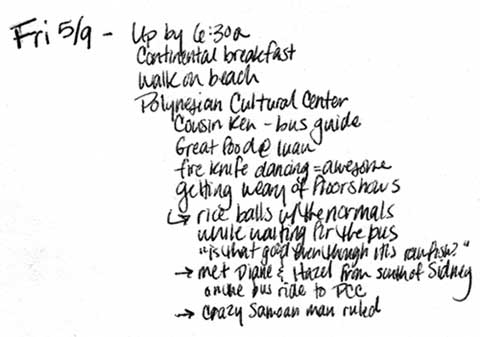 Fri 5/9 - Up by 6:30a
Continental breakfast
Walk on beach
Polynesian Cultural Center
Cousin Ken - bus guide
Great food @ luau
fire knife dancing = awesome
getting weary of floorshows
→ rice balls w/ the normals
while waiting for the bus
"is that good even though it's raw fish?"
→ met Diane & Hazel from south of Sidney
on the bus ride to PCC
→ crazy Samoan man ruled